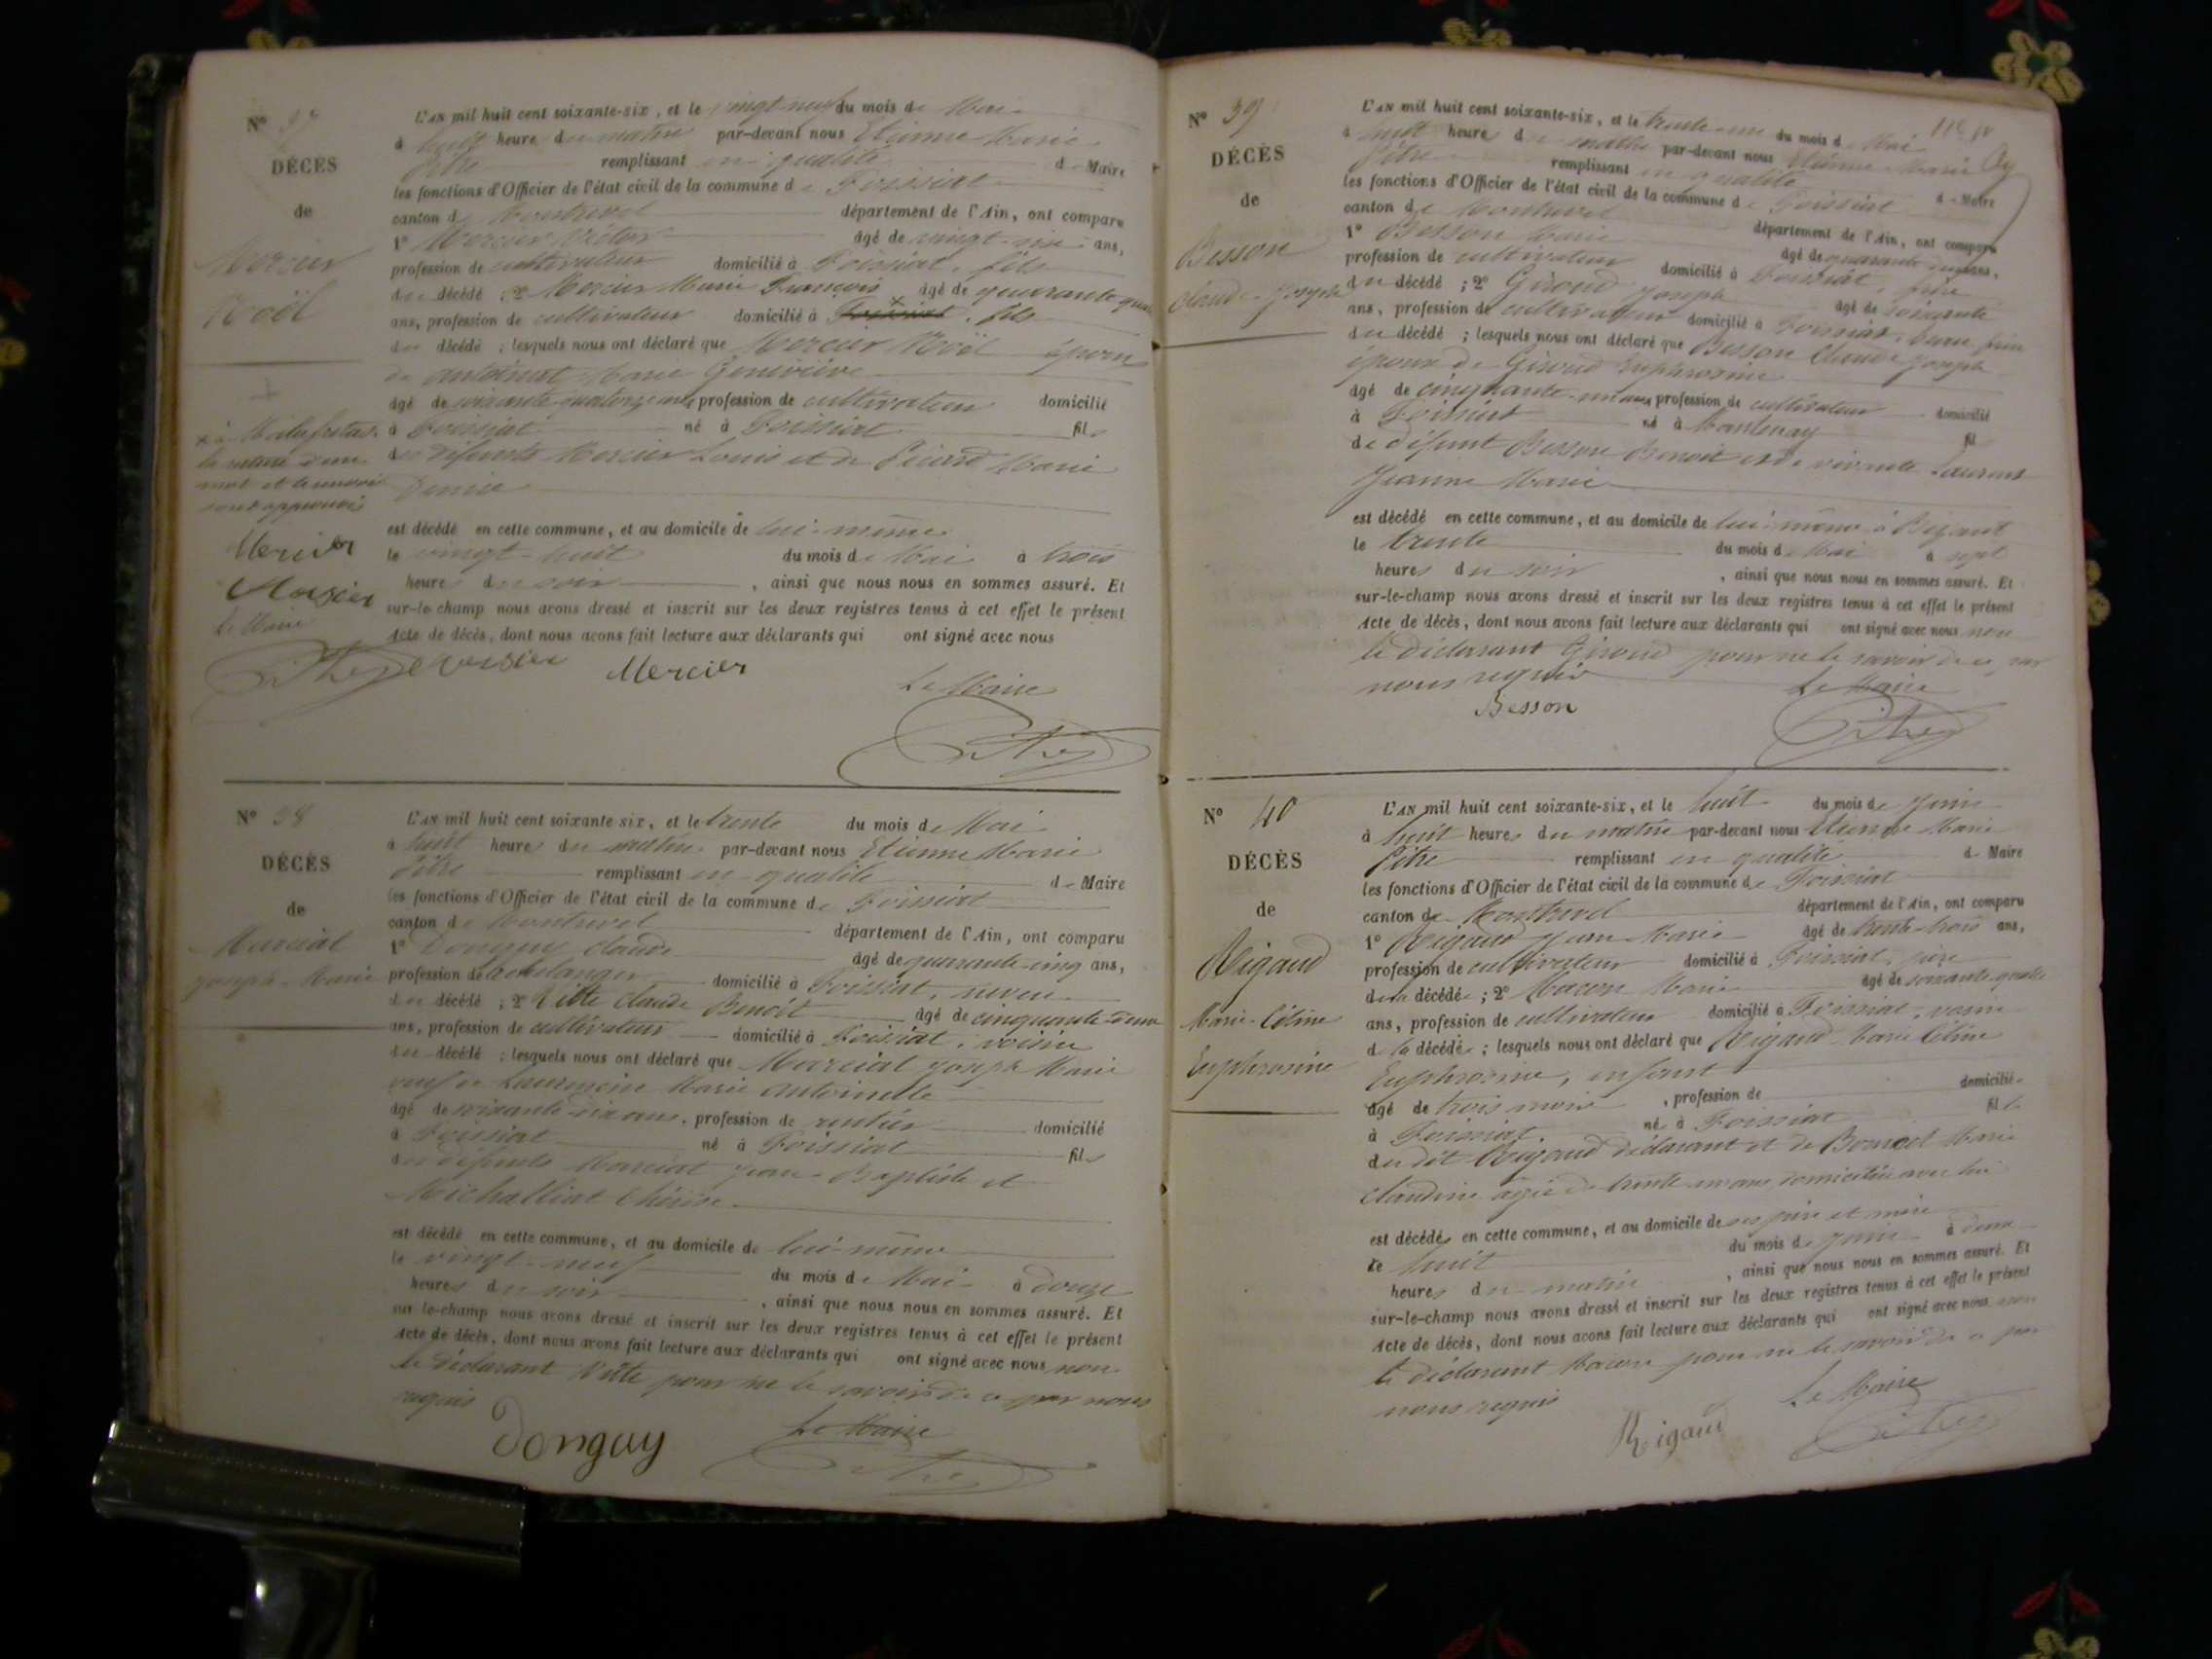 N° 37
DÉCÈS
de
Mercier
Noël
L'AN mil huit cent soixante-six, et le vingt neuf du mois de Mai
à huit heures du matin par-devant nous Etienne Marie
Pitre remplissant en qualité de Maire
les fonctions d'Officier de l'état civil de la commune de Foissiat
canton de Montrevel département de l'Ain, ont comparu
1° Mercier Victor âgé de vingt-six ans,
profession de cultivateur domicilié à Foissiat, fils
du décédé ; 2° Mercier Marie François âgé de quarante quatre
ans, profession de cultivateur domicilié à Foissiat, fils
du décédé ; lesquels nous ont déclaré que Mercier Noël époux
de Antoinat Marie Geneviève
âgé de soixante-quatorze ans, profession de cultivateur domicilié
à Foissiat né à Foissiat fils
de défunts Mercier Louis et de Picard Marie
Denise
est décédé en cette commune, et au domicile de lui-même
le vingt-huit du mois de Mai à trois
heures du soir, ainsi que nous nous en sommes assuré. Et
sur-le champ nous avons dressé et inscrit sur les deux registres tenus à cet effet le présent
Acte de décès, dont nous avons fait lecture aux déclarants qui ont signé avec nous
la rature d'un
mot et le renvoi
sont approuvés
Mercier
Mercier
le Maire
Pitre Mercier Mercier
Le Maire
Pitre
N° 38
DÉCÈS
de
Marciat
Joseph-Marie
L'AN mil huit cent soixante-six, et le trente du mois de Mai
à huit heures du matin par-devant nous Etienne Marie
Pitre remplissant en qualité de Maire
les fonctions d'Officier de l'état civil de la commune de Foissiat
canton de Montrevel département de l'Ain, ont comparu
1° Donguy Claude âgé de quarante-cinq ans,
profession de boulanger domicilié à Foissiat, neveu
du décédé ; 2° Vitte Claude Benoit âgé de cinquante-deux
ans, profession de cultivateur domicilié à Foissiat, voisin
du décédé ; lesquels nous ont déclaré que Marciat Joseph Marie
veuf de Marie Antoinette
âgé de soixante-dix ans, profession de rentier domicilié
à Foissiat né à Foissiat fils
de défunts Marciat Jean-Baptiste et
Michalliat Thérèse
est décédé en cette commune, et au domicile de lui-même
le vingt-neuf du mois de Mai à douze
heures du soir, ainsi que nous nous en sommes assuré. Et
sur le-champ nous avons dressé et inscrit sur les deux registres tenus à cet effet le présent
Acte de décès, dont nous avons fait lecture aux déclarants qui ont signé avec nous non
le déclarant Vitte pour ne le savoir de ce par nous
requis
Donguy
Le Maire
Pitre
N° 39
DÉCÈS
de
Besson
Claude-Joseph
L'AN mil huit cent soixante-six, et le trente-un du mois de Mai
à huit heures du matin par-devant nous Etienne Marie
Pitre remplissant en qualité de Maire
les fonctions d'Officier de l'état civil de la commune de Foissiat
canton de Montrevel département de l'Ain, ont comparu
1° Besson Marie âgé de quarante ans,
profession de cultivateur domicilié à Foissiat, frère
du décédé ; 2° Giroud Joseph âgé de soixante
ans, profession de cultivateur domicilié à Foissiat, beau frère
du décédé ; lesquels nous ont déclaré que Besson Claude Joseph
époux de Giroud Euphrosine
âgé de cinquante-un ans, profession de cultivateur domicilié
à Foissiat né à Mantenay fils
de défunt Besson Benoit et de vivante Laurent
Jeanne Marie
est décédé en cette commune, et au domicile de lui-même à
le trente du mois de Mai à sept
heures du soir, ainsi que nous nous en sommes assuré. Et
sur-le-champ nous avons dressé et inscrit sur les deux registres tenus à cet effet le présent
Acte de décès, dont nous avons fait lecture aux déclarants qui ont signé avec nous non
le déclarant Giroud pour ne le savoir de ce par
nous requis
Le Maire
Besson
Pitre
N° 40
DÉCÈS
de
Rigaud
Marie-Céline
Euphrosine
L'AN mil huit cent soixante-six, et le huit du mois de Juin
à huit heures du matin par-devant nous Etienne Marie
Pitre remplissant en qualité de Maire
les fonctions d'Officier de l'état civil de la commune de Foissiat
canton de Montrevel département de l'Ain, ont comparu
1° Rigaud Jean Marie âgé de trente-trois ans,
profession de cultivateur domicilié à Foissiat, père
de la décédée ; 2° Macon Marie âgé de soixante-quatre
ans, profession de cultivateur domicilié à Foissiat, voisin
de la décédée ; lesquels nous ont déclaré que Rigaud Marie Céline
Euphrosine, enfant
âgé de trois mois, profession de domiciliée
à Foissiat née à Foissiat fille
du dit Rigaud déclarant et de Marie
Claudine âgée de trente ans, domiciliée avec lui
est décédée en cette commune, et au domicile de ses père et mère
le huit du mois de Juin à deux
heures du matin, ainsi que nous nous en sommes assuré. Et
sur-le-champ nous avons dressé et inscrit sur les deux registres tenus à cet effet le présent
Acte de décès, dont nous avons fait lecture aux déclarants qui ont signé avec nous non
le déclarant Macon pour ne le savoir de ce par
nous requis
Le Maire
Rigaud
Pitre